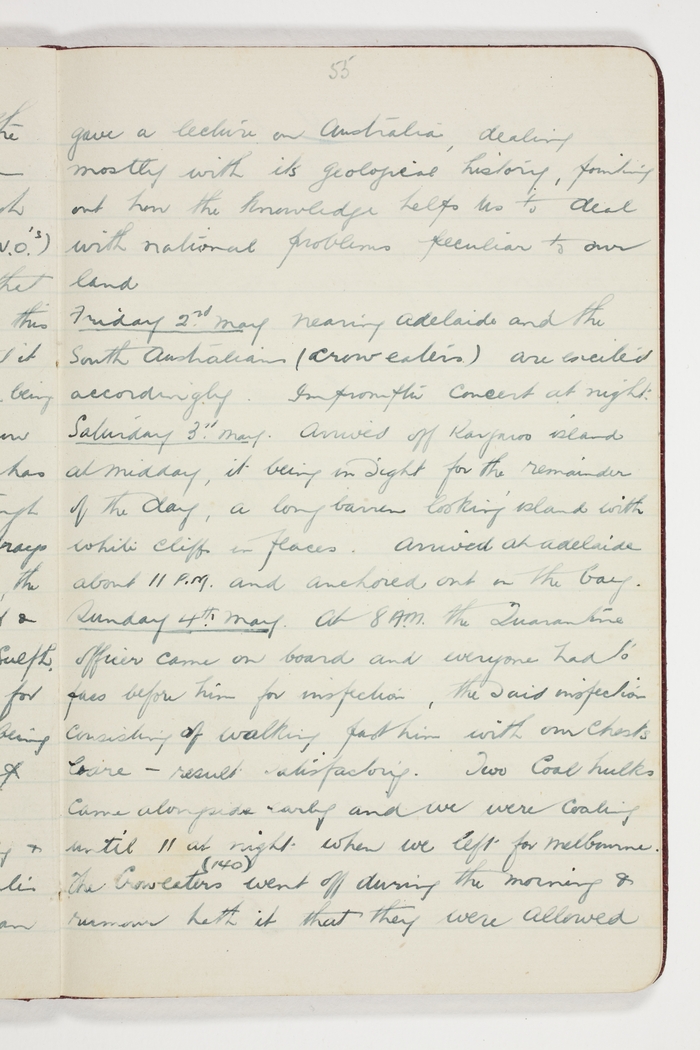 55
gave a lecture on Australia, dealing
mostly with its geological history, pointing
out how the knowledge helps us to deal
with national problems peculiar to our
land
Friday 2nd May nearing Adelaide and the
South Australians (croweaters) are excited
accordingly. Impromptu Concert at night.
Saturday 3rd May. Arrived off Kangaroo island
at midday, it being in sight for the remainder
of the day, a long barren looking island with
white cliffs in places. Arrived at Adelaide
about 11 P.M. and anchored out in the bay.
Sunday 4th May. At 8 A.M. the Quarantine
officer came on board and everyone had to
pass before him for inspection, the said inspection
consisting of walking past him with our chests
bare - result satisfactory. Two Coal hulks
came alongside early and we were coaling
until 11 at night when we left for Melbourne.
(140)
The Croweaters went off during the morning &
rumour hath it that they were allowed
the
V.O.'s)
that
this
it
being
has
rays
, the
&
Sulph.
for
being
&